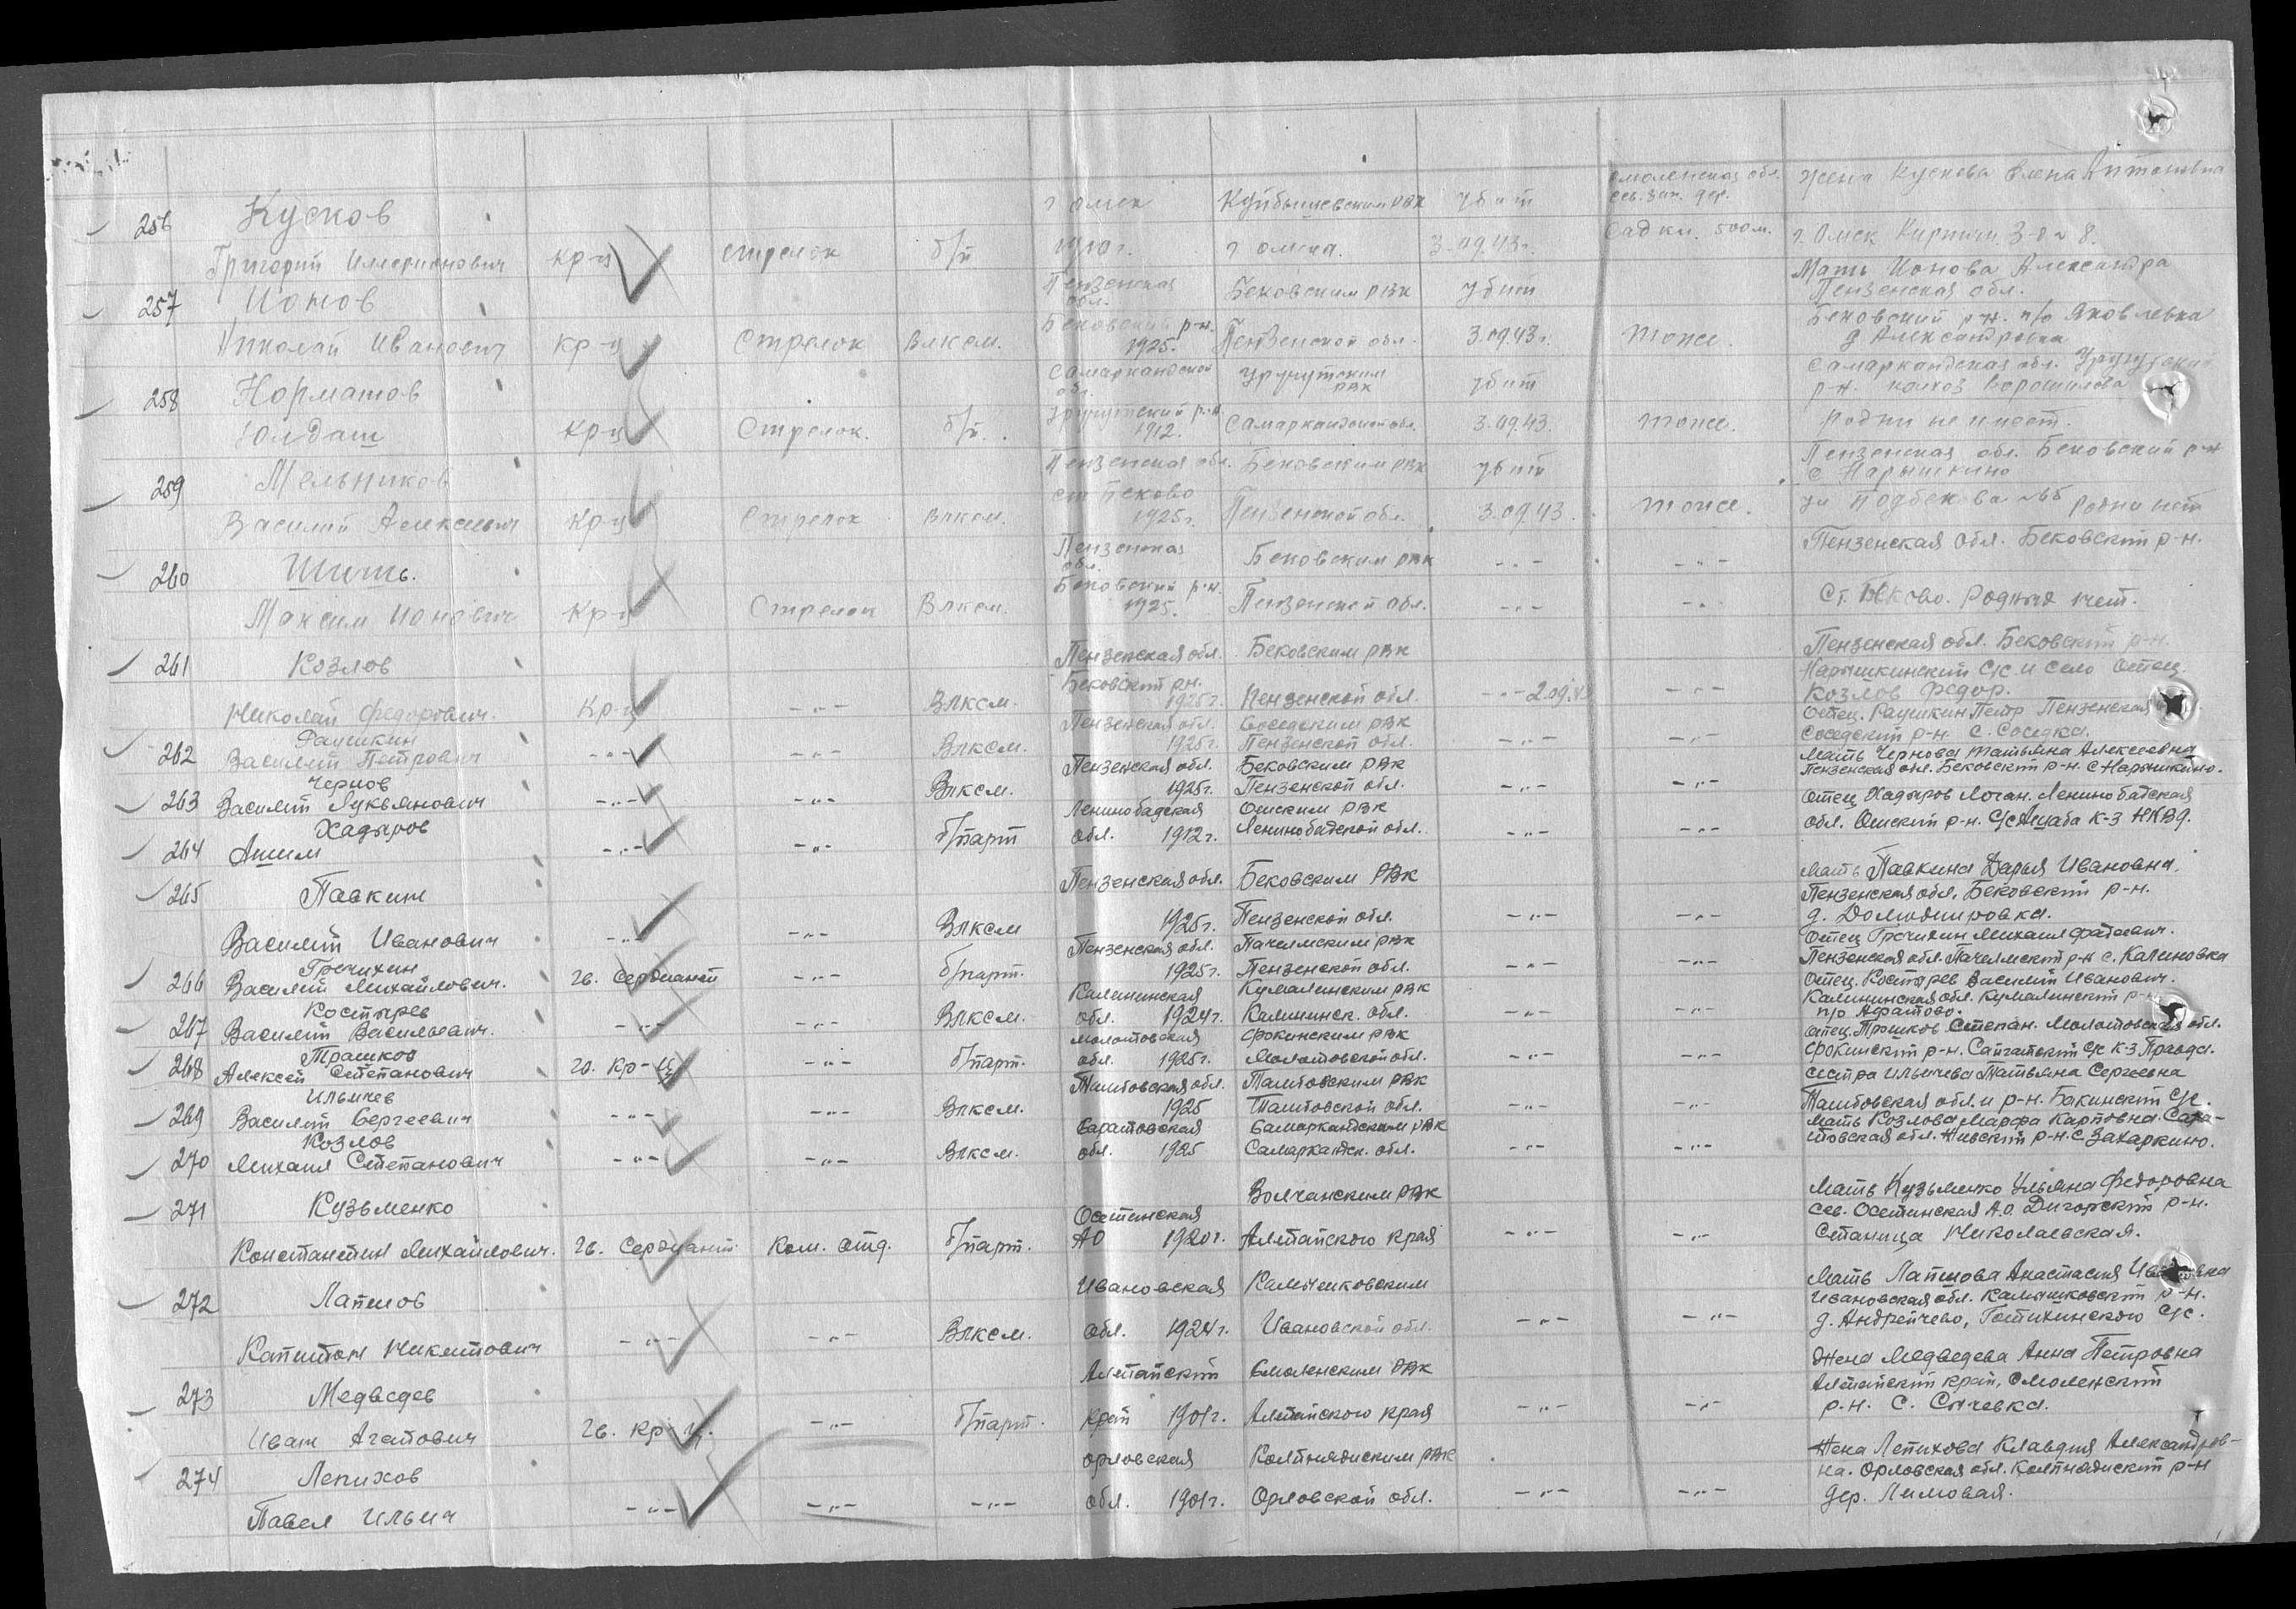 256 Кусков г Омск Куйбышевским РВК убит Смоленская обл. сев. зап. дер. жена Кускова Елена Антоновна
Григорий кр-ц стрелок б/п 1910г. г Омска. 3.09.43г. Садки. 500м. г. Омск Кирпич. 3-я 8.
257 Ионов Пензенская обл. Бековским РВК убит Мать Ионова Александра Пензенская обл.
Николай Иванович кр-ц Стрелок Влксм. Бековский р-н. 1925. Пензенской обл. 3.09.43г. тоже. Бековский р-н. п/о Яковлевка д Александровка
258 Норматов Самаркандской обл. Ургутским РВК убит Самаркандская обл. Ургутский р-н. колхоз Ворошилова
Юлдаш кр-ц Стрелок. б/п. Ургутский р-н 1912. Самаркандской обл. 3.09.43. тоже. родни не имеет.
259 Мельников Пензенская обл. Бековским РВК убит Пензенская обл. Бековский р-н с Нарышкино
Василий Алексеевич кр-ц Стрелок Влксм. ст Беково 1925г. Пензенской обл. 3.09.43. тоже. ул родни нет
260 Шить. Пензенская обл. Бековским РВК -"- -"- Пензенская обл. Бековский р-н.
Максим Ионович Кр-ц Стрелок Влксм. Бековский р-н. 1925. Пензенской обл. -"- -"- Ст. Беково. Родных нет.
261 Козлов Пензенская обл. Бековским РВК Пензенская обл. Бековский р-н.
Николай Федорович. Кр-ц -"- Влксм. Бековский р-н. 1925г. Пензенской обл. -"- 2.09.43 -"- Нарышкинский с/с и село Отец. Козлов Федор.
Раушкин Пензенская обл. Соседским РВК Отец. Раушкин Петр Пензенская
262 Василий Петрович -"- -"- Влксм. 1925г. Пензенской обл. -"- -"- Соседский р-н. с. Соседка.
Чернов Пензенская обл. Бековским РВК Мать Чернова Татьяна Алексеевна
263 Василий Лукьянович -"- -"- Влксм. 1925г. Пензенской обл. -"- -"- Пензенская обл. Бековский р-н. с Нарышкино.
Хадыров Ленинобадская Ошским РВК Отец Хадыров Ленинобадская
264 Ашим -"- -"- б/парт обл. 1912г. Ленинобадской обл. -"- -"- обл. Ошский р-н. с/с К-З НКВД.
265 Павкин Пензенская обл. Бековским РВК Мать Павкина Дарья Ивановна.
Василий Иванович -"- -"- Влксм 1925г. Пензенской обл. -"- -"- Пензенская обл. Бековский р-н. д.
Гречихин Пензенская обл. Пачелмским РВК Отец Гречихин Михаил
266 Василий Михайлович. Гв. Сержант -"- б/парт. 1925г. Пензенской обл. -"- -"- Пензенская обл. Пачелмский р-н с. Калиновка
Костырев Калининская Кумалинским РВК Отец. Костырев Василий Иванович.
267 Василий Васильевич. -"- -"- Влксм. обл. 1924г. Калининск. обл. -"- -"- Калининская обл. Кумалинский р-н п/о
Трашков Молотовская Фокинским РВК Отец. Степан. Молотовская обл.
268 Алексей Степанович Гв. Кр-ц -"- б/парт. обл. 1925г. Молотовской обл. -"- -"- Фокинский р-н. с/с К-З Правда.
Ильичев Тамбовская обл. Тамбовским РВК сестра Ильичева Татьяна Сергеевна
269 Василий Сергеевич -"- -"- Влксм. 1925 Тамбовской обл. -"- -"- Тамбовская обл. и р-н. Бакинский с/с.
Козлов Саратовская Самаркандским РВК Мать Козлова Марфа Карповна. Сара-
270 Михаил Степанович -"- -"- Влксм. обл. 1925 Самарканск. обл. -"- -"- товская обл. р-н. с. Захаркино.
271 Кузьменко Осетинская Волчанским РВК Мать Кузьменко Ульяна Федоровна
Константин Михайлович. Гв. Сержант Ком. Отд. б/парт. АО 1920г. Алтайского края -"- -"- Сев. Осетинская А.О. Дигорский р-н. Станица Николаевская.
272 Лапшов Ивановская Камешковским Мать Лапшова Анастасия
Капитон Никитович -"- -"- Влксм. обл. 1924г. Ивановской обл. -"- -"- Ивановская обл. Камешковский р-н. д. Андрейчево, с/с.
273 Медведев Алтайский Смоленским РВК Жена Медведева Анна Петровна
Иван Агапович Гв. кр-ц. -"- б/парт. край 1901г. Алтайского края -"- -"- Алтайский край, Смоленский р-н. с. Сычевка.
274 Лепихов Орловская Колпнянским РВК Жена Лепихова Клавдия Александров-
Павел Ильич -"- -"- -"- обл. 1901г. Орловской обл. -"- -"- на. Орловская обл. р-н дер. Липовая.